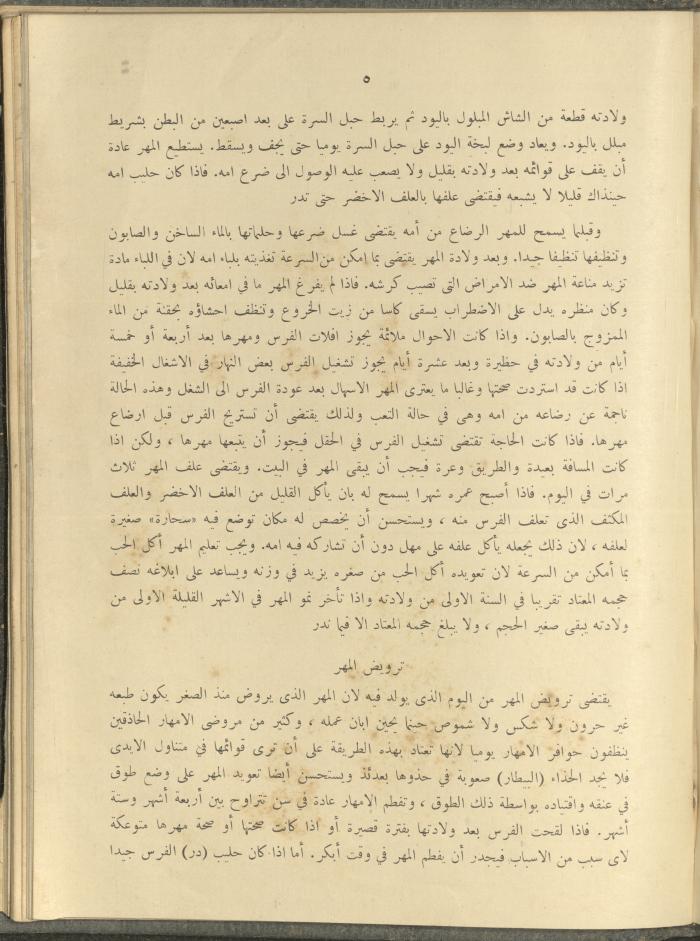 ٥
ولادته قطعة من الشاش المبلول باليود ثم يربط حبل السرة على بعد اصبعين من البطن بشريط
مبلل باليود. ويعاد وضع لبخة اليود على حبل السرة يوميا حتى يجف ويسقط. يستطيع المهر عادة
أن يقف على قوائمه بعد ولادته بقليل ولا يصعب عليه الوصول الى ضرع امه. فاذا كان حليب امه
حينذاك قليلا لا يشبعه فيقتضى علفها بالعلف الاخضر حتى تدر
وقبلما يسمح للمهر الرضاع من أمه يقتضى غسل ضرعها وحلماتها بالماء الساخن والصابون
وتنظيفها تنظيفا جيدا. وبعد ولادة المهر يقتضى بما إمكن من السرعة تغذيته بلباء امه لان في اللباء مادة
تزيد مناعة المهر ضد الامراض التى تصيب كرشه. فاذا لم يفرغ المهر ما في امعائه بعد ولادته بقليل
وكان منظره يدل على الاضطراب يسقى كاسا من زيت الخروع وتنظف احشاؤه بحقنة من الماء
الممزوج بالصابون. واذا كانت الاحوال ملائمة يجوز افلات الفرس ومهرها بعد أربعة أو خمسة
أيام من ولادته في حظيرة وبعد عشرة أيام يجوز تشغيل الفرس بعض النهار في الاشغال الخفيفة
اذا كانت قد استردت صحتها وغالبا ما يعترى المهر الاسهال بعد عودة الفرس الى الشغل وهذه الحالة
ناجمة عن رضاعه من امه وهى في حالة التعب ولذلك يقتضى أن تستريح الفرس قبل ارضاع
مهرها. فاذا كانت الحاجة تقتضى تشغيل الفرس في الحقل فيجوز أن يتبعها مهرها ، ولكن اذا
كانت المسافة بعيدة والطريق وعرة فيجب أن يبقى المهر في البيت. ويقتضى علف المهر ثلاث
مرات في اليوم. فاذا أصبح عمره شهرا يسمح له بان يأكل القليل من العلف الاخضر والعلف
المكثف الذى تعلف الفرس منه ، ويستحسن أن يخصص له مكان توضع فيه «سحارة» صغيرة
لعلفه ، لان ذلك يجعله يأكل علفه على مهل دون أن تشاركه فيه امه. ويجب تعليم المهر أكل الحب
بما أمكن من السرعة لان تعويده أكل الحب من صغره يزيد في وزنه ويساعد على ابلاغه نصف
حجمه المعتاد تقريبا في السنة الاولى من ولادته واذا تأخر نمو المهر في الاشهر القليلة الاولى من
ولادته يبقى صغير الحجم ، ولا يبلغ حجمه المعتاد الا فيما ندر
ترويض المهر
يقتضى ترويض المهر من اليوم الذى يولد فيه لان المهر الذى يروض منذ الصغر يكون طبعه
غير حرون ولا شكس ولا شموص حينما يحين ابان عمله ، وكثير من مروضى الامهار الحاذقين
ينظفون حوافر الامهار يوميا لانها تعتاد بهذه الطريقة على أن ترى قوائمها في متناول الايدى
فلا يجد الحذاء (البيطار) صعوبة في حذوها بعدئذ ويستحسن أيضا تعويد المهر على وضع طوق
في عنقه واقتياده بواسطة ذلك الطوق ، وتفطم الامهار عادة في سن تتراوح بين أربعة أشهر وستة
أشهر. فاذا لقحت الفرس بعد ولادتها بفترة قصيرة أو اذا كانت صحتها أو صحة مهرها متوعكة
لاى سبب من الاسباب فيجدر أن يفطم المهر في وقت أبكر. أما اذا كان حليب (در) الفرس جيدا